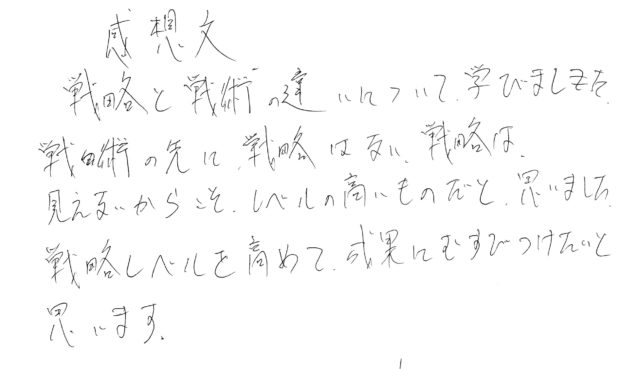 感想文
戦略と戦術の違いについて、学びました。
戦術の先に、戦略はない、戦略は、
見えないからこそ、レベルの高いものだと、思いました。
戦略レベルを高めて、成果にむすびつけたいと
思います。